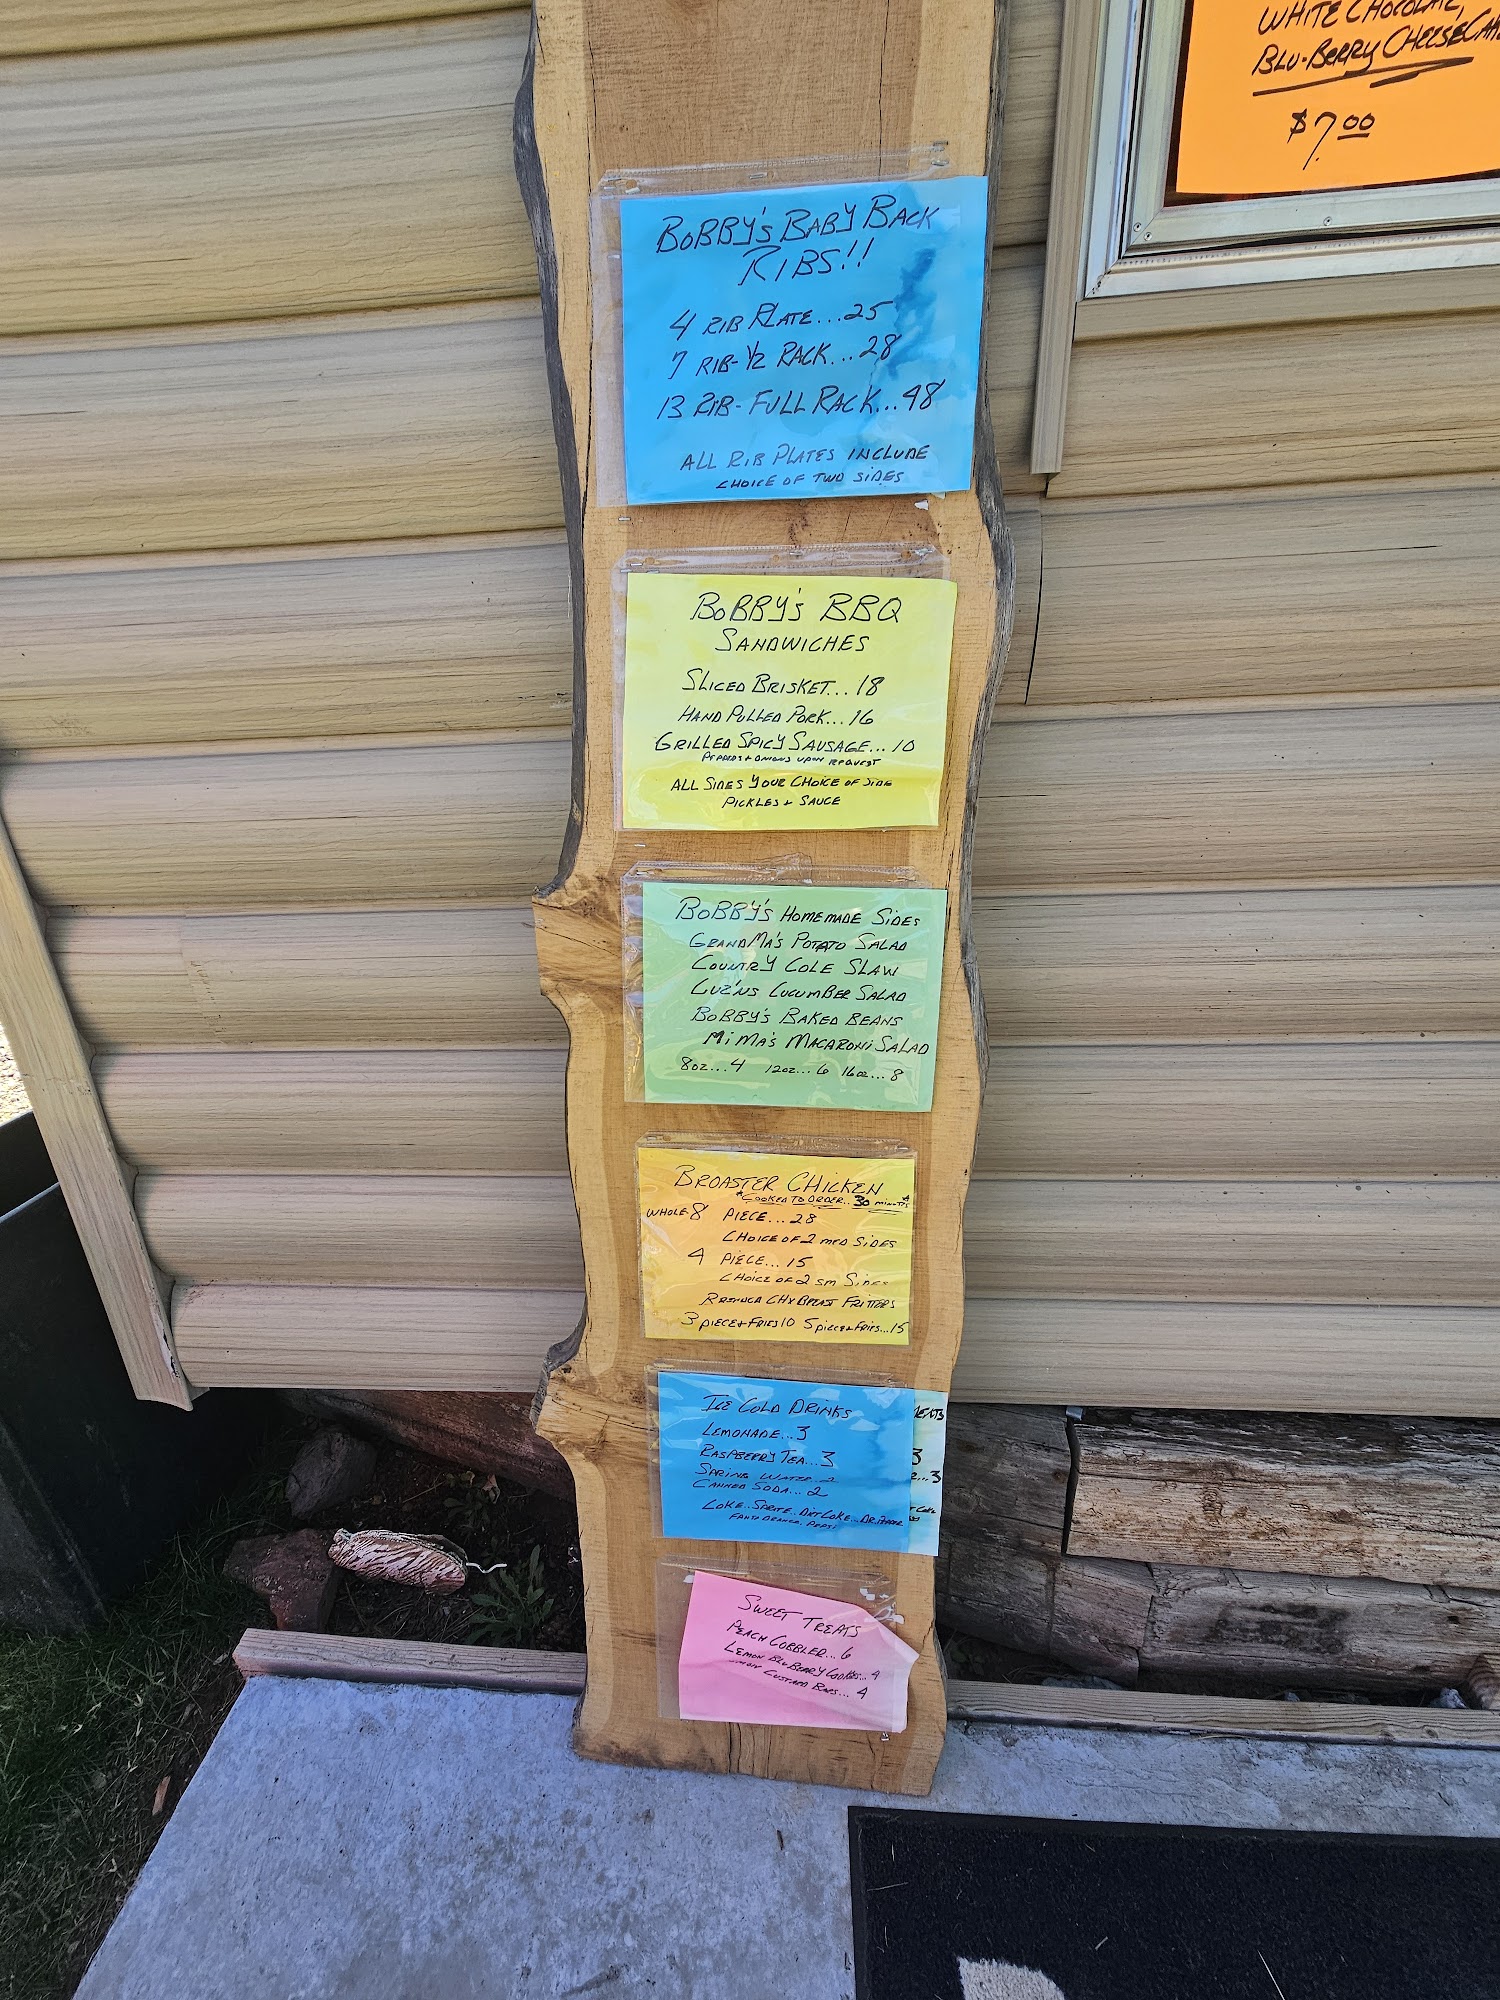 WHITE CHOCOLATE,
BLU-BERRY CHEESECAKE
$7.00
BOBBY'S BABY BACK
RIBS!!
4 RIB PLATE...25
7 RIB-1/2 RACK...28
13 RIB-FULL RACK...48
ALL RIB PLATES INCLUDE
CHOICE OF TWO SIDES
BOBBY'S BBQ
SANDWICHES
SLICED BRISKET...18
HAND PULLED PORK...16
GRILLED SPICY SAUSAGE...10
PEPPERS + ONIONS UPON REQUEST
ALL SIDES YOUR CHOICE OF SIDE
PICKLES + SAUCE
BOBBY'S HOMEMADE SIDES
GRANDMA'S POTATO SALAD
COUNTRY COLE SLAW
CUZ'NS CUCUMBER SALAD
BOBBY'S BAKED BEANS
MIMA'S MACARONI SALAD
8oz...4 12oz...6 16oz...8
BROASTER CHICKEN
*COOKED TO ORDER..30 MINUTES*
WHOLE 8 PIECE...28
CHOICE OF 2 MED SIDES
4 PIECE...15
CHOICE OF 2 SM SIDES
BREAST FRITTERS
3 PIECE + FRIES 10 5 PIECE + FRIES...15
ICE COLD DRINKS
LEMONADE...3
RASPBERRY TEA...3
SPRING WATER...2
CANNED SODA...2
COKE..SPRITE..DIET COKE...DR PEPPER
FANTA ORANGE, PEPSI
3
...3
SWEET TREATS
PEACH COBBLER...6
LEMON BLUBERRY COOKIES...4
CUSTARD BARS...4